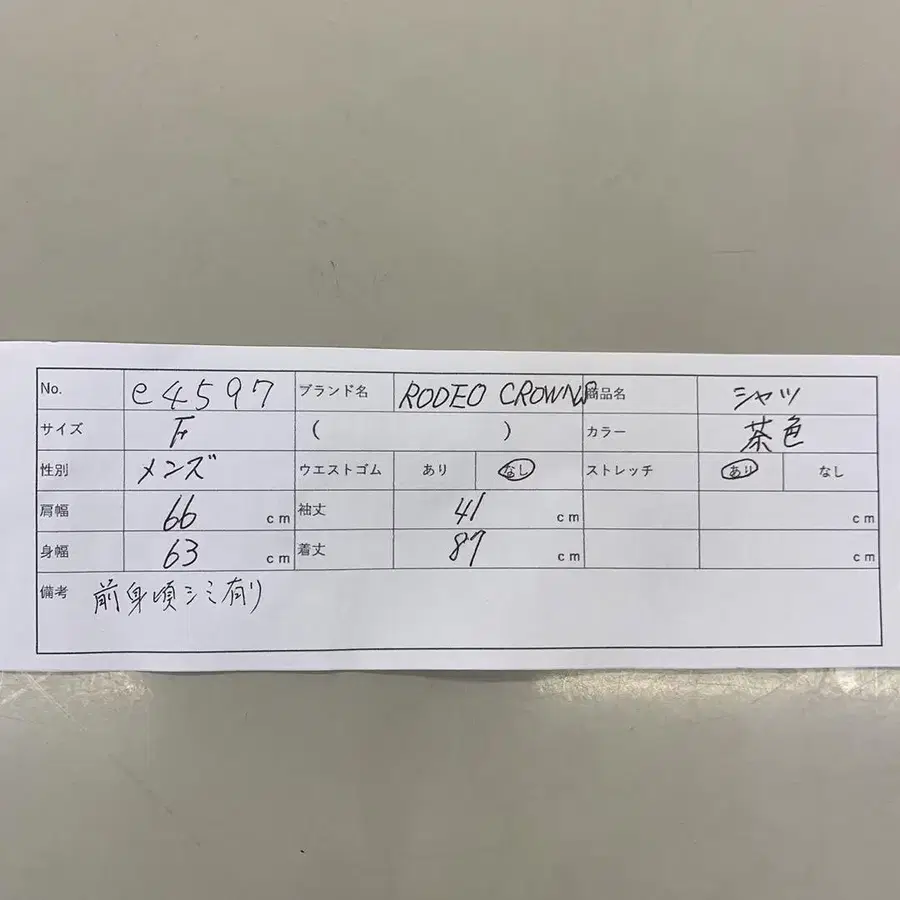 No. e4597 ブランド名 RODEO CROWNS 商品名 シャツ
サイズ F ( ) カラー 茶色
性別 メンズ ウエストゴム あり なし ストレッチ あり なし
肩幅 66 cm 袖丈 41 cm cm
身幅 63 cm 着丈 87 cm cm
備考 前身頃シミ有り